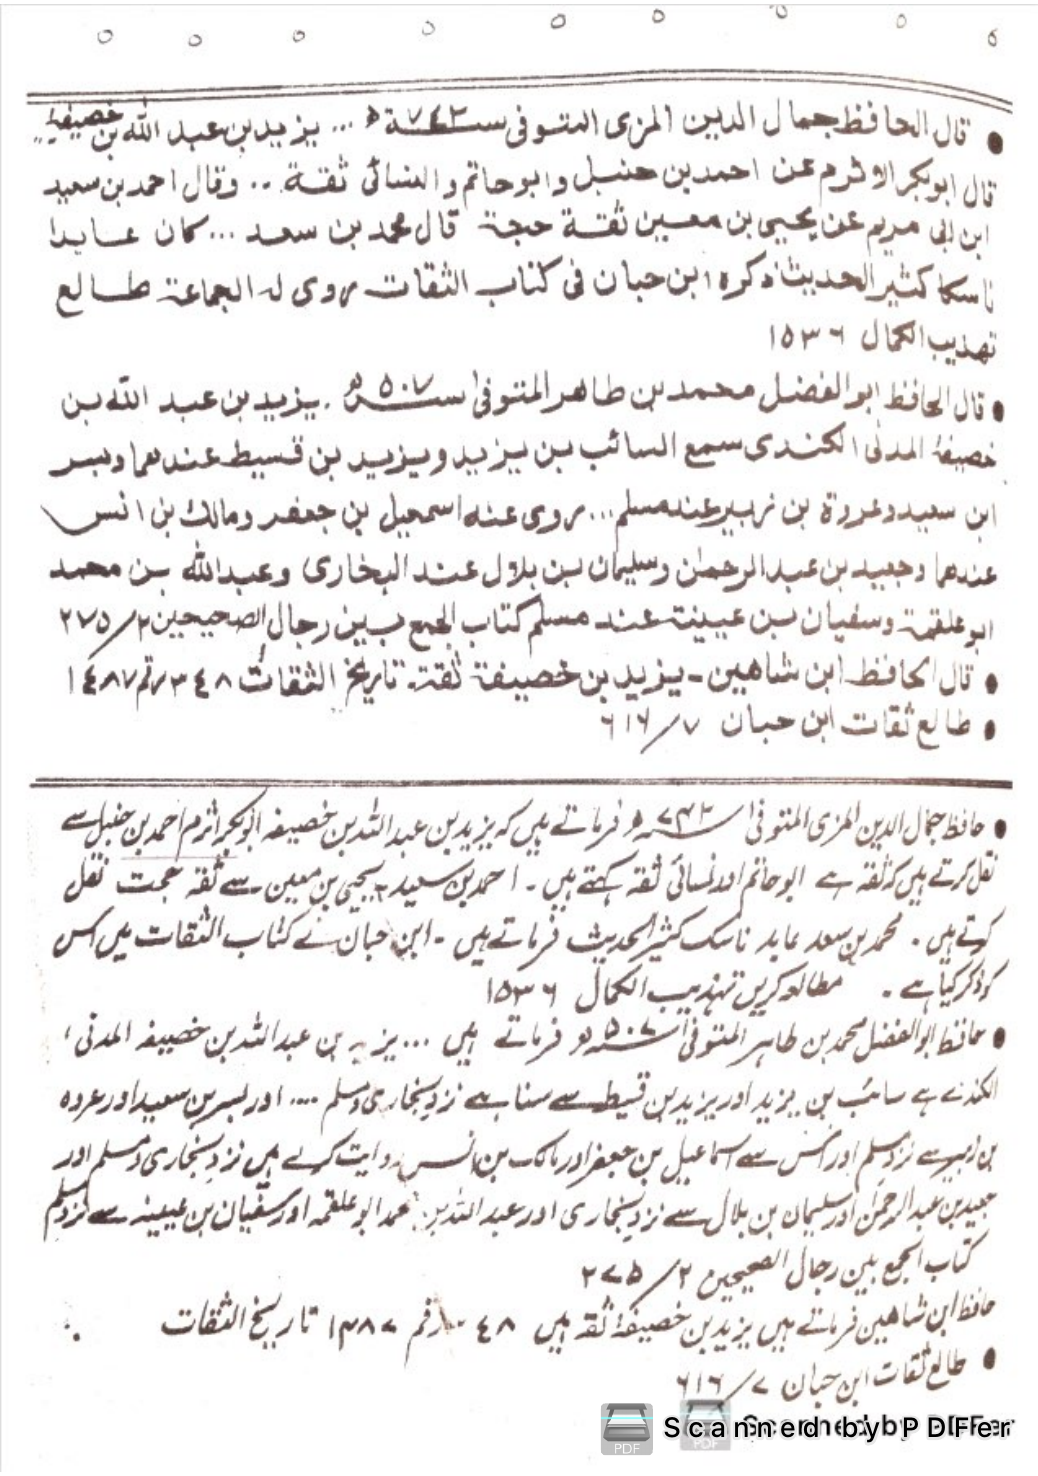 قال الحافظ جمال الدين المزى المتوفى سنة ٧٤٢ھ ... يزيد بن عبد الله بن خصيفة ...
قال ابوبكر الاثرم عن احمد بن حنبل وابو حاتم و النسائى ثقة .. وقال احمد بن سعيد
ابن ابى مريم عن يحيى بن معين ثقة حجة قال محمد بن سعد ... كان عابدا
ناسكا كثير الحديث ذكره ابن حبان فى كتاب الثقات روى له الجماعة طالع
تهذيب الكمال ١٥٣٦
قال الحافظ ابو الفضل محمد بن طاهر المتوفى سنة ٥٠٧ھ . يزيد بن عبد الله بن
خصيفة المدنى الكندى سمع السائب بن يزيد ويزيد بن قسيط عندهما وبسر
ابن سعيد وعروة بن زبير عند مسلم ... روى عنه اسمعيل بن جعفر ومالك بن انس
عندهما وجعيد بن عبد الرحمن وسليمان بن بلال عند البخارى وعبد الله بن محمد
ابو علقمة وسفيان بن عيينة عند مسلم كتاب الجمع بين رجال الصحيحين ٢/٢٧٥
قال الحافظ ابن شاهين - يزيد بن خصيفة ثقة . تاريخ الثقات ٣٤٨ رقم ١٤٨٧
طالع ثقات ابن حبان ٧/٦١٦
حافظ جمال الدین المزی المتوفی ۷۴۲ھ فرماتے ہیں کہ یزید بن عبد اللہ بن خصیفہ ابو بکر اثرم احمد بن حنبل سے
نقل کرتے ہیں کہ ثقہ ہے ابو حاتم اور نسائی ثقہ کہتے ہیں - احمد بن سعید یحیی بن معین سے ثقہ حجت نقل
کرتے ہیں . محمد بن سعد عابد ناسک کثیر الحدیث فرماتے ہیں - ابن حبان نے کتاب الثقات میں اس
کو ذکر کیا ہے . مطالعہ کریں تہذیب الکمال ۱۵۳۶
حافظ ابو الفضل محمد بن طاہر المتوفی ۵۰۷ھ فرماتے ہیں ... یزید بن عبد اللہ بن خصیفہ المدنی
الکندی ہے سائب بن یزید اور یزید بن قسیط سے سنا ہے نزد بخاری و مسلم .... اور بسر بن سعید اور عروہ
بن زبیر سے نزد مسلم اور اس سے اسماعیل بن جعفر اور مالک بن انس روایت کرتے ہیں نزد بخاری و مسلم اور
جعید بن عبد الرحمن اور سلیمان بن بلال سے نزد بخاری اور عبد اللہ بن محمد ابو علقمہ اور سفیان بن عیینہ سے نزد مسلم
کتاب الجمع بین رجال الصحیحین ۲/۲۷۵
حافظ ابن شاہین فرماتے ہیں یزید بن خصیفۃ ثقہ ہیں رقم ۱۴۸۷ تاریخ الثقات
طالع ثقات ابن حبان ۷/۶۱۶
Scanned by PDFer
Scanned by PDFer